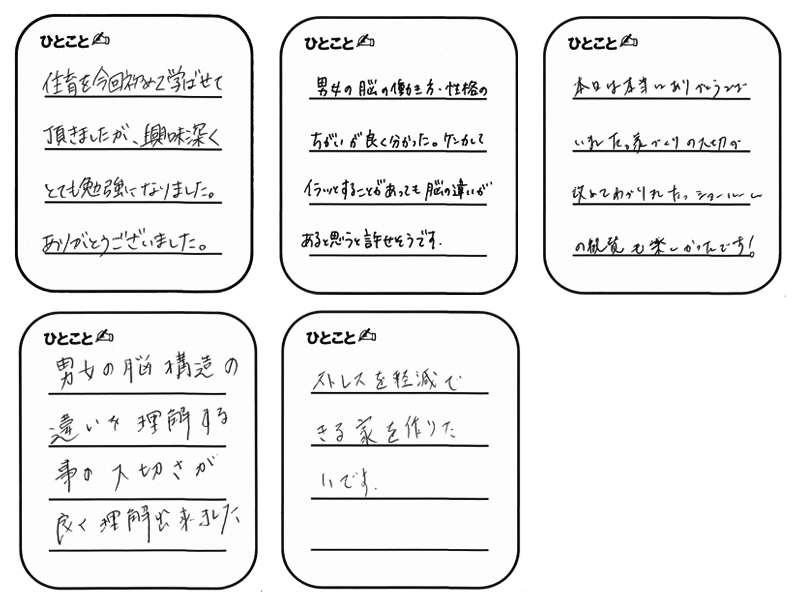 ひとこと
住育を今回初めて学ばせて
頂きましたが、興味深く
とても勉強になりました。
ありがとうございました。
ひとこと
男女の脳の働き方・性格の
ちがいが良く分かった。ケンカして
イラッとすることがあっても脳の違いが
あると思うと許せそうです.
ひとこと
本日は本当にありがとうござ
いました。家づくりの大切さ
改めてわかりました。ショールーム
の観覧も楽しかったです!
ひとこと
男女の脳構造の
違いを理解する
事の大切さが
良く理解出来ました
ひとこと
ストレスを軽減で
きる家を作りた
いです.